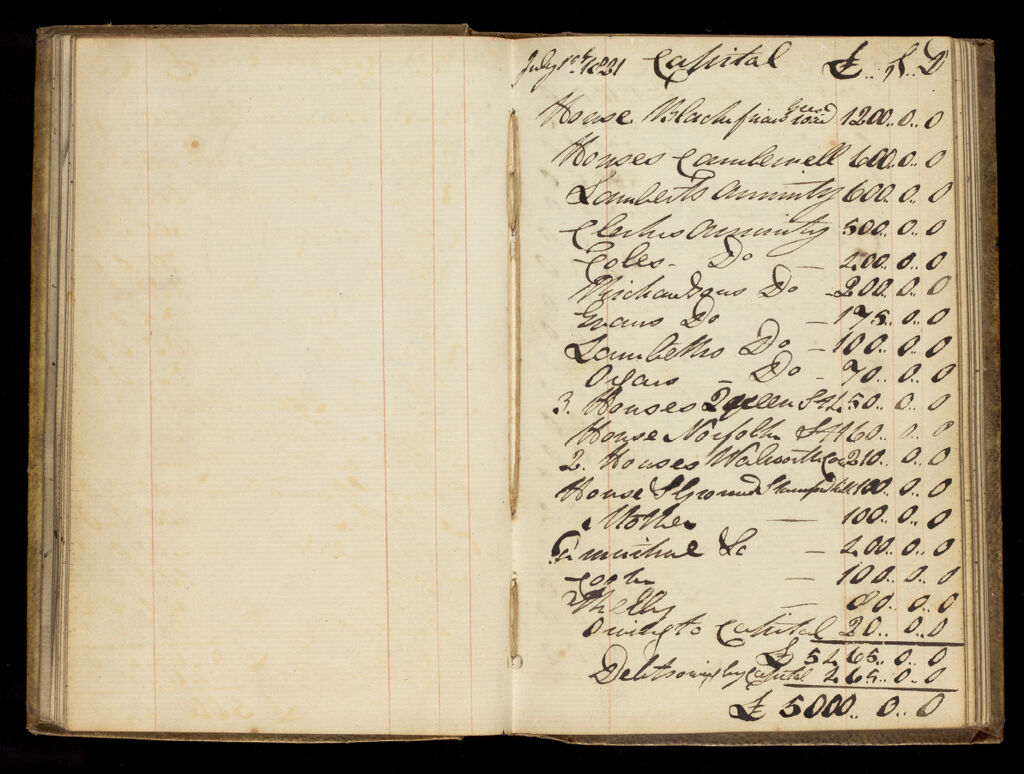 July 1st 1831 Capital £.. S.. D
House Blackfriars road 1200.. 0.. 0
Houses Camberwell 600.. 0.. 0
Lamberts Annuity 600.. 0.. 0
Clarkes Annuity 500.. 0.. 0
Coles - Do - 200.. 0.. 0
Richardsons Do - 200.. 0.. 0
Evans Do - 175.. 0.. 0
Lambeths Do - 100.. 0.. 0
Organs - Do - 70.. 0.. 0
3. Houses Queen St 250.. 0.. 0
House Norfolk St 460.. 0.. 0
2. Houses Walworth 210.. 0.. 0
House & Ground Stamford Hill 0.. 0
Mother — 100.. 0.. 0
Carmichael & Co — 200.. 0.. 0
Cook — 100.. 0.. 0
— 80.. 0.. 0
Owing to Capital 20.. 0.. 0
£ 5265.. 0.. 0
Debts owing by Capital 265.. 0.. 0
£ 5000.. 0.. 0